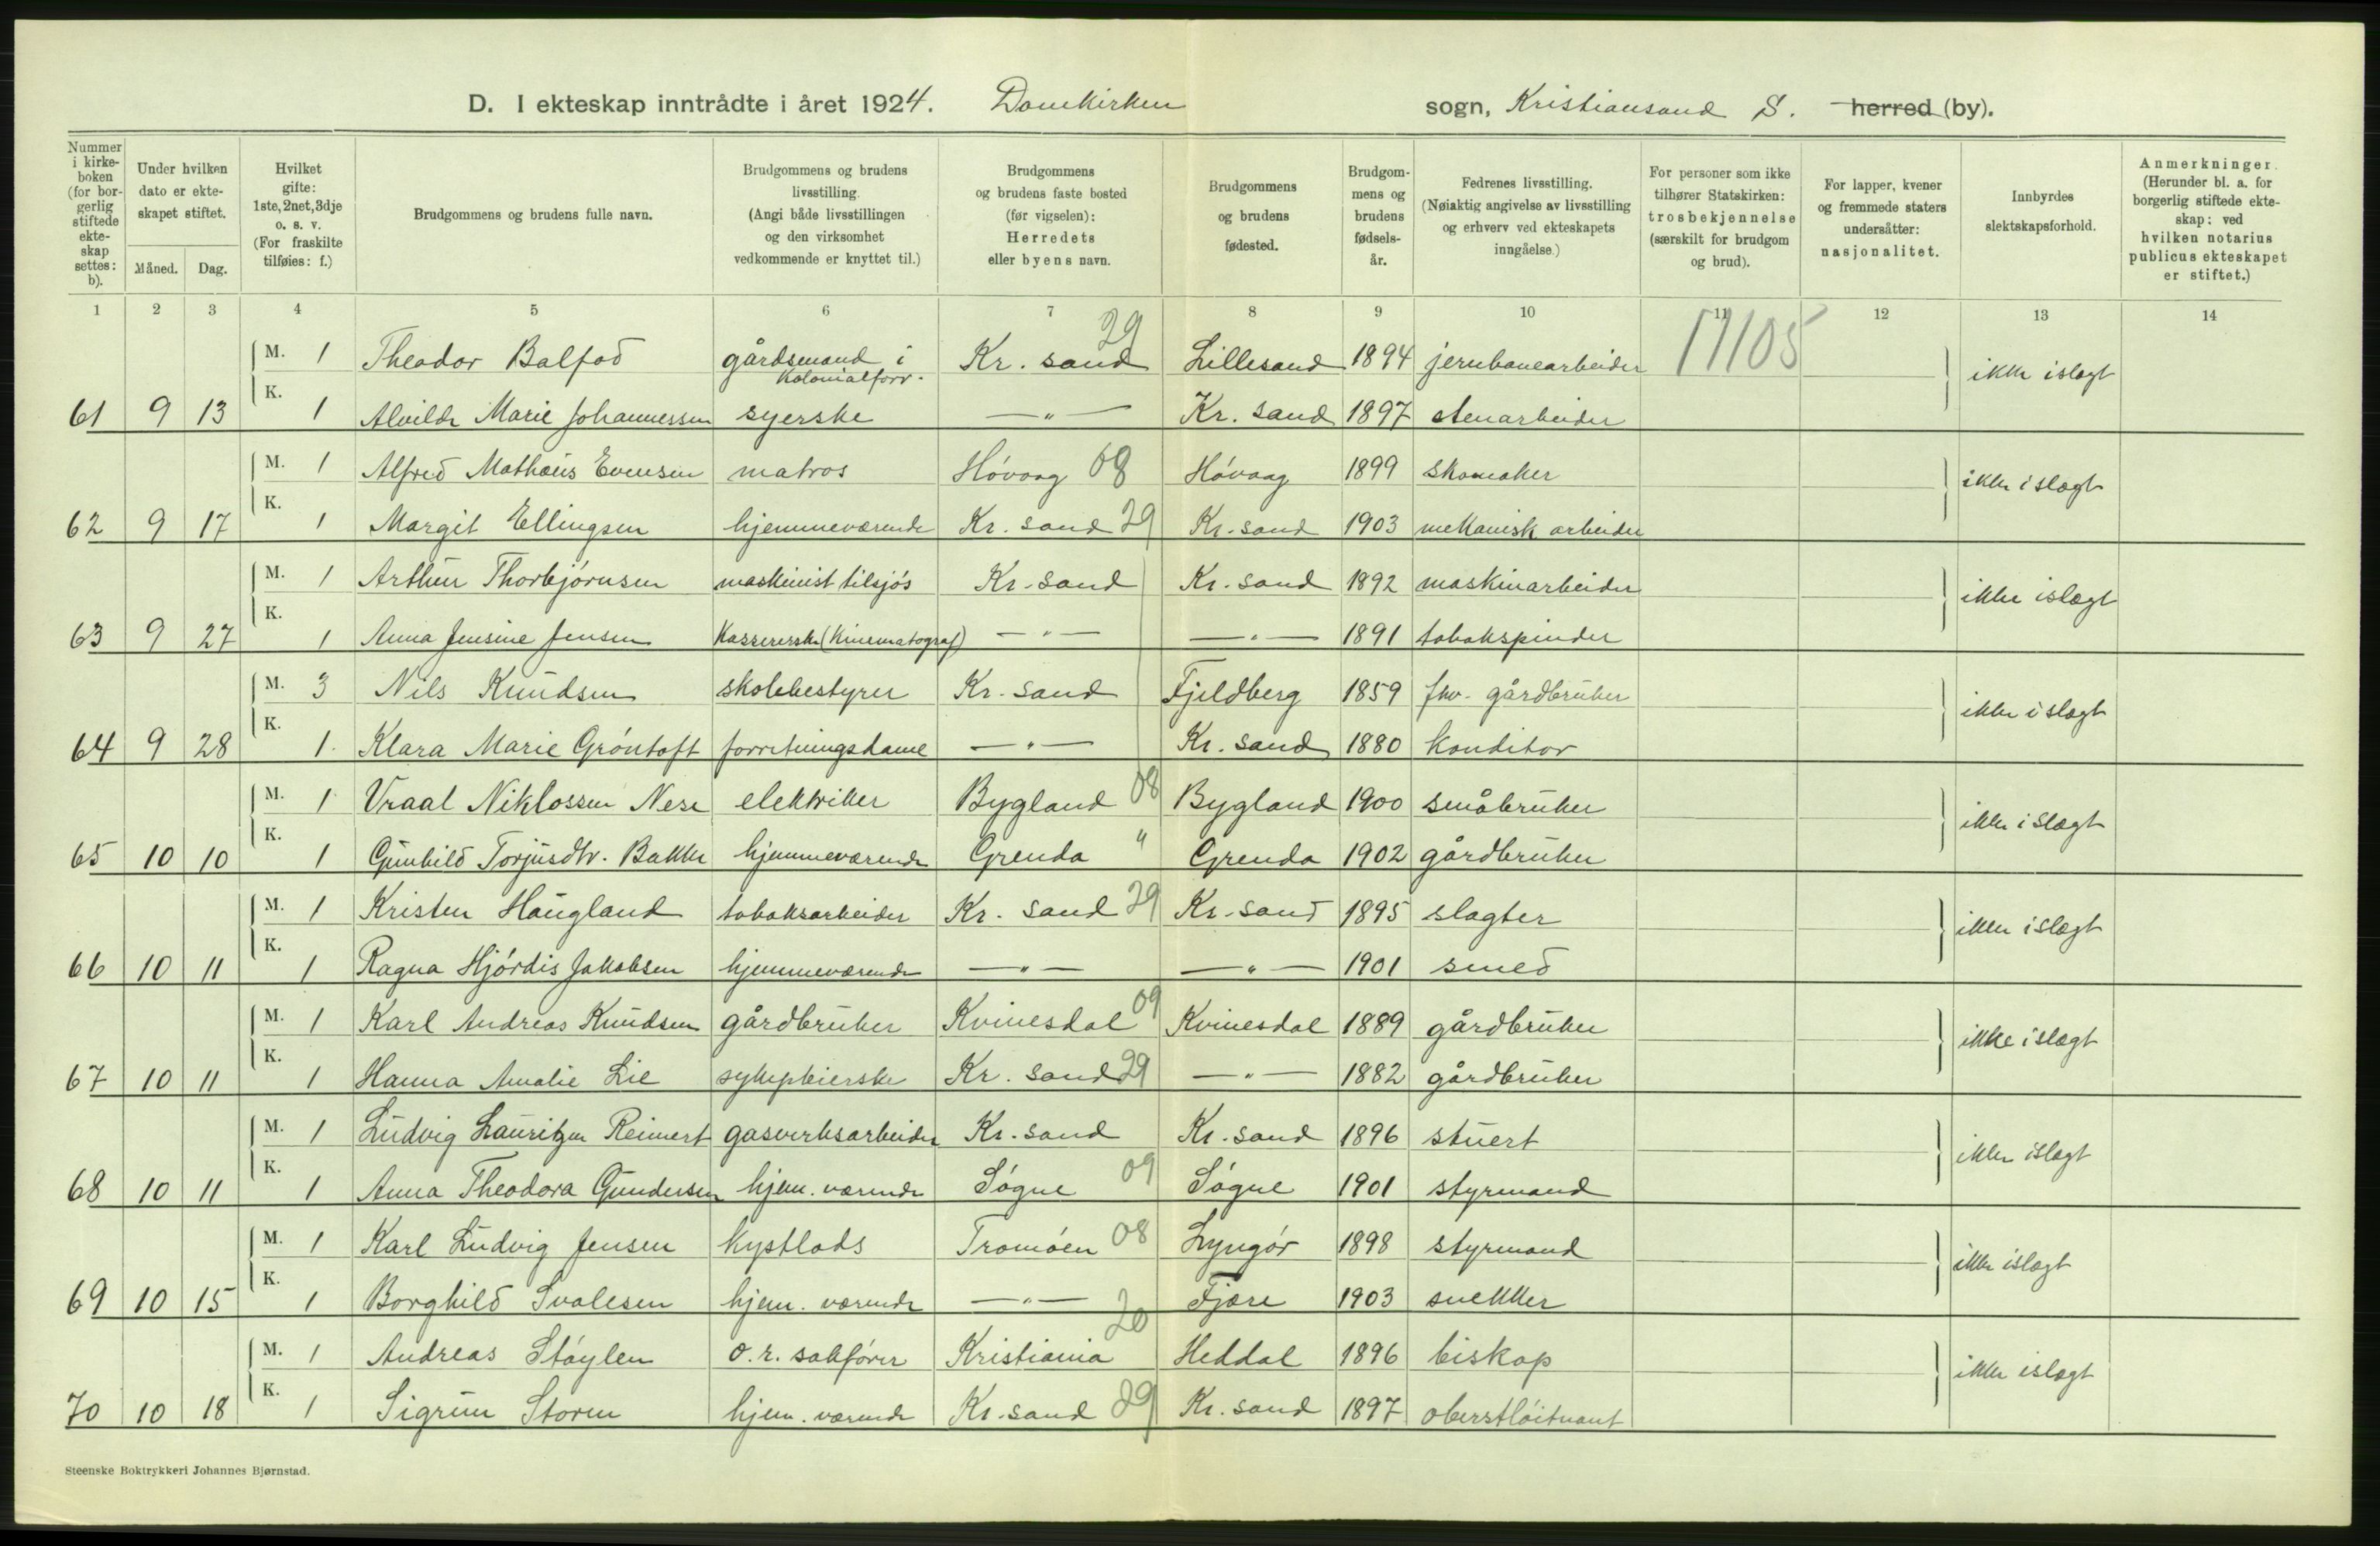 D. I ekteskap inntrådte i året 1924. Domkirken sogn, Kristiansand S. herred (by).
Nummer i kirkeboken (for borgerlig stiftede ekteskap settes: b).
Under hvilken dato er ekteskapet stiftet.
Måned. Dag.
Hvilket gifte: 1ste, 2net, 3dje o. s. v. (For fraskilte tilføies: f.)
Brudgommens og brudens fulle navn.
Brudgommens og brudens livsstilling. (Angi både livsstillingen og den virksomhet vedkommende er knyttet til.)
Brudgommens og brudens faste bosted (før vigselen): Herredets eller byens navn.
Brudgommens og brudens fødested.
Brudgommens og brudens fødselsår.
Fedrenes livsstilling. (Nøiaktig angivelse av livsstilling og erhverv ved ekteskapets inngåelse.)
For personer som ikke tilhører Statskirken: trosbekjennelse (særskilt for brudgom og brud).
For lapper, kvener og fremmede staters undersåtter: nasjonalitet.
Innbyrdes slektskapsforhold.
Anmerkninger. (Herunder bl. a. for borgerlig stiftede ekteskap: ved hvilken notarius publicus ekteskapet er stiftet.)
1 2 3 4 5 6 7 8 9 10 11 12 13 14
M. 1 Theodor Balfod gårdsmand i Kolonialforr. Kr. sand 29 Lillesand 1894 jernbanearbeider 17105 ikke i slægt
61 9 13 K. 1 Alvilde Marie Johannessen syerske —"— Kr. sand 1897 stenarbeider
M. 1 Alfred Mathæus Evensen matros Hóvaag 08 Hóvaag 1899 skomaker ikke i slægt
62 9 17 K. 1 Margit Ellingsen hjemmeværende Kr. sand 29 Kr. sand 1903 mekanisk arbeider
M. 1 Arthur Thorbjórnsen maskinist tilsjós Kr. sand Kr. sand 1892 maskinarbeider ikke i slægt
63 9 27 K. 1 Anna Jensine Jensen Kassererske (Kinematograf) —"— —"— 1891 tobakspinder
M. 3 Nils Knudsen skolebestyrer Kr. sand Fjeldberg 1859 fhv. gårdbruker ikke i slægt
64 9 28 K. 1 Klara Marie Gróntoft forretningsdame —"— Kr. sand 1880 konditor
M. 1 Vraal Niklossen Nese elektriker Bygland 08 Bygland 1900 småbruker ikke i slægt
65 10 10 K. 1 Gunhild Torjusdtr. Bakke hjemmeværende Grenda " Grenda 1902 gårdbruker
M. 1 Kristen Haugland tobaksarbeider Kr. sand 29 Kr. sand 1895 slagter ikke i slægt
66 10 11 K. 1 Ragna Hjórdis Jakobsen hjemmeværende —"— —"— 1901 smed
M. 1 Karl Andreas Knudsen gårdbruker Kvinesdal 09 Kvinesdal 1889 gårdbruker ikke i slægt
67 10 11 K. 1 Hanna Amalie Lie sykepleierske Kr. sand 29 —"— 1882 gårdbruker
M. 1 Ludvig Lauritzen Reimert gasverksarbeider Kr. sand Kr. sand 1896 stuert ikke i slægt
68 10 11 K. 1 Anna Theodora Gundersen hjem. værende Sógne 09 Sógne 1901 styrmand
M. 1 Karl Ludvig Jensen kystlods Tromóen 08 Lyngór 1898 styrmand ikke i slægt
69 10 15 K. 1 Borghild Svalesen hjem. værende —"— Fjære 1903 snekker
M. 1 Andreas Stóylen o. r. sakfórer Kristiania 20 Heddal 1896 biskop ikke i slægt
70 10 18 K. 1 Sigrun Storm hjem. værende Kr. sand 29 Kr. sand 1897 oberstlóitnant
Steenske Boktrykkeri Johannes Bjørnstad.